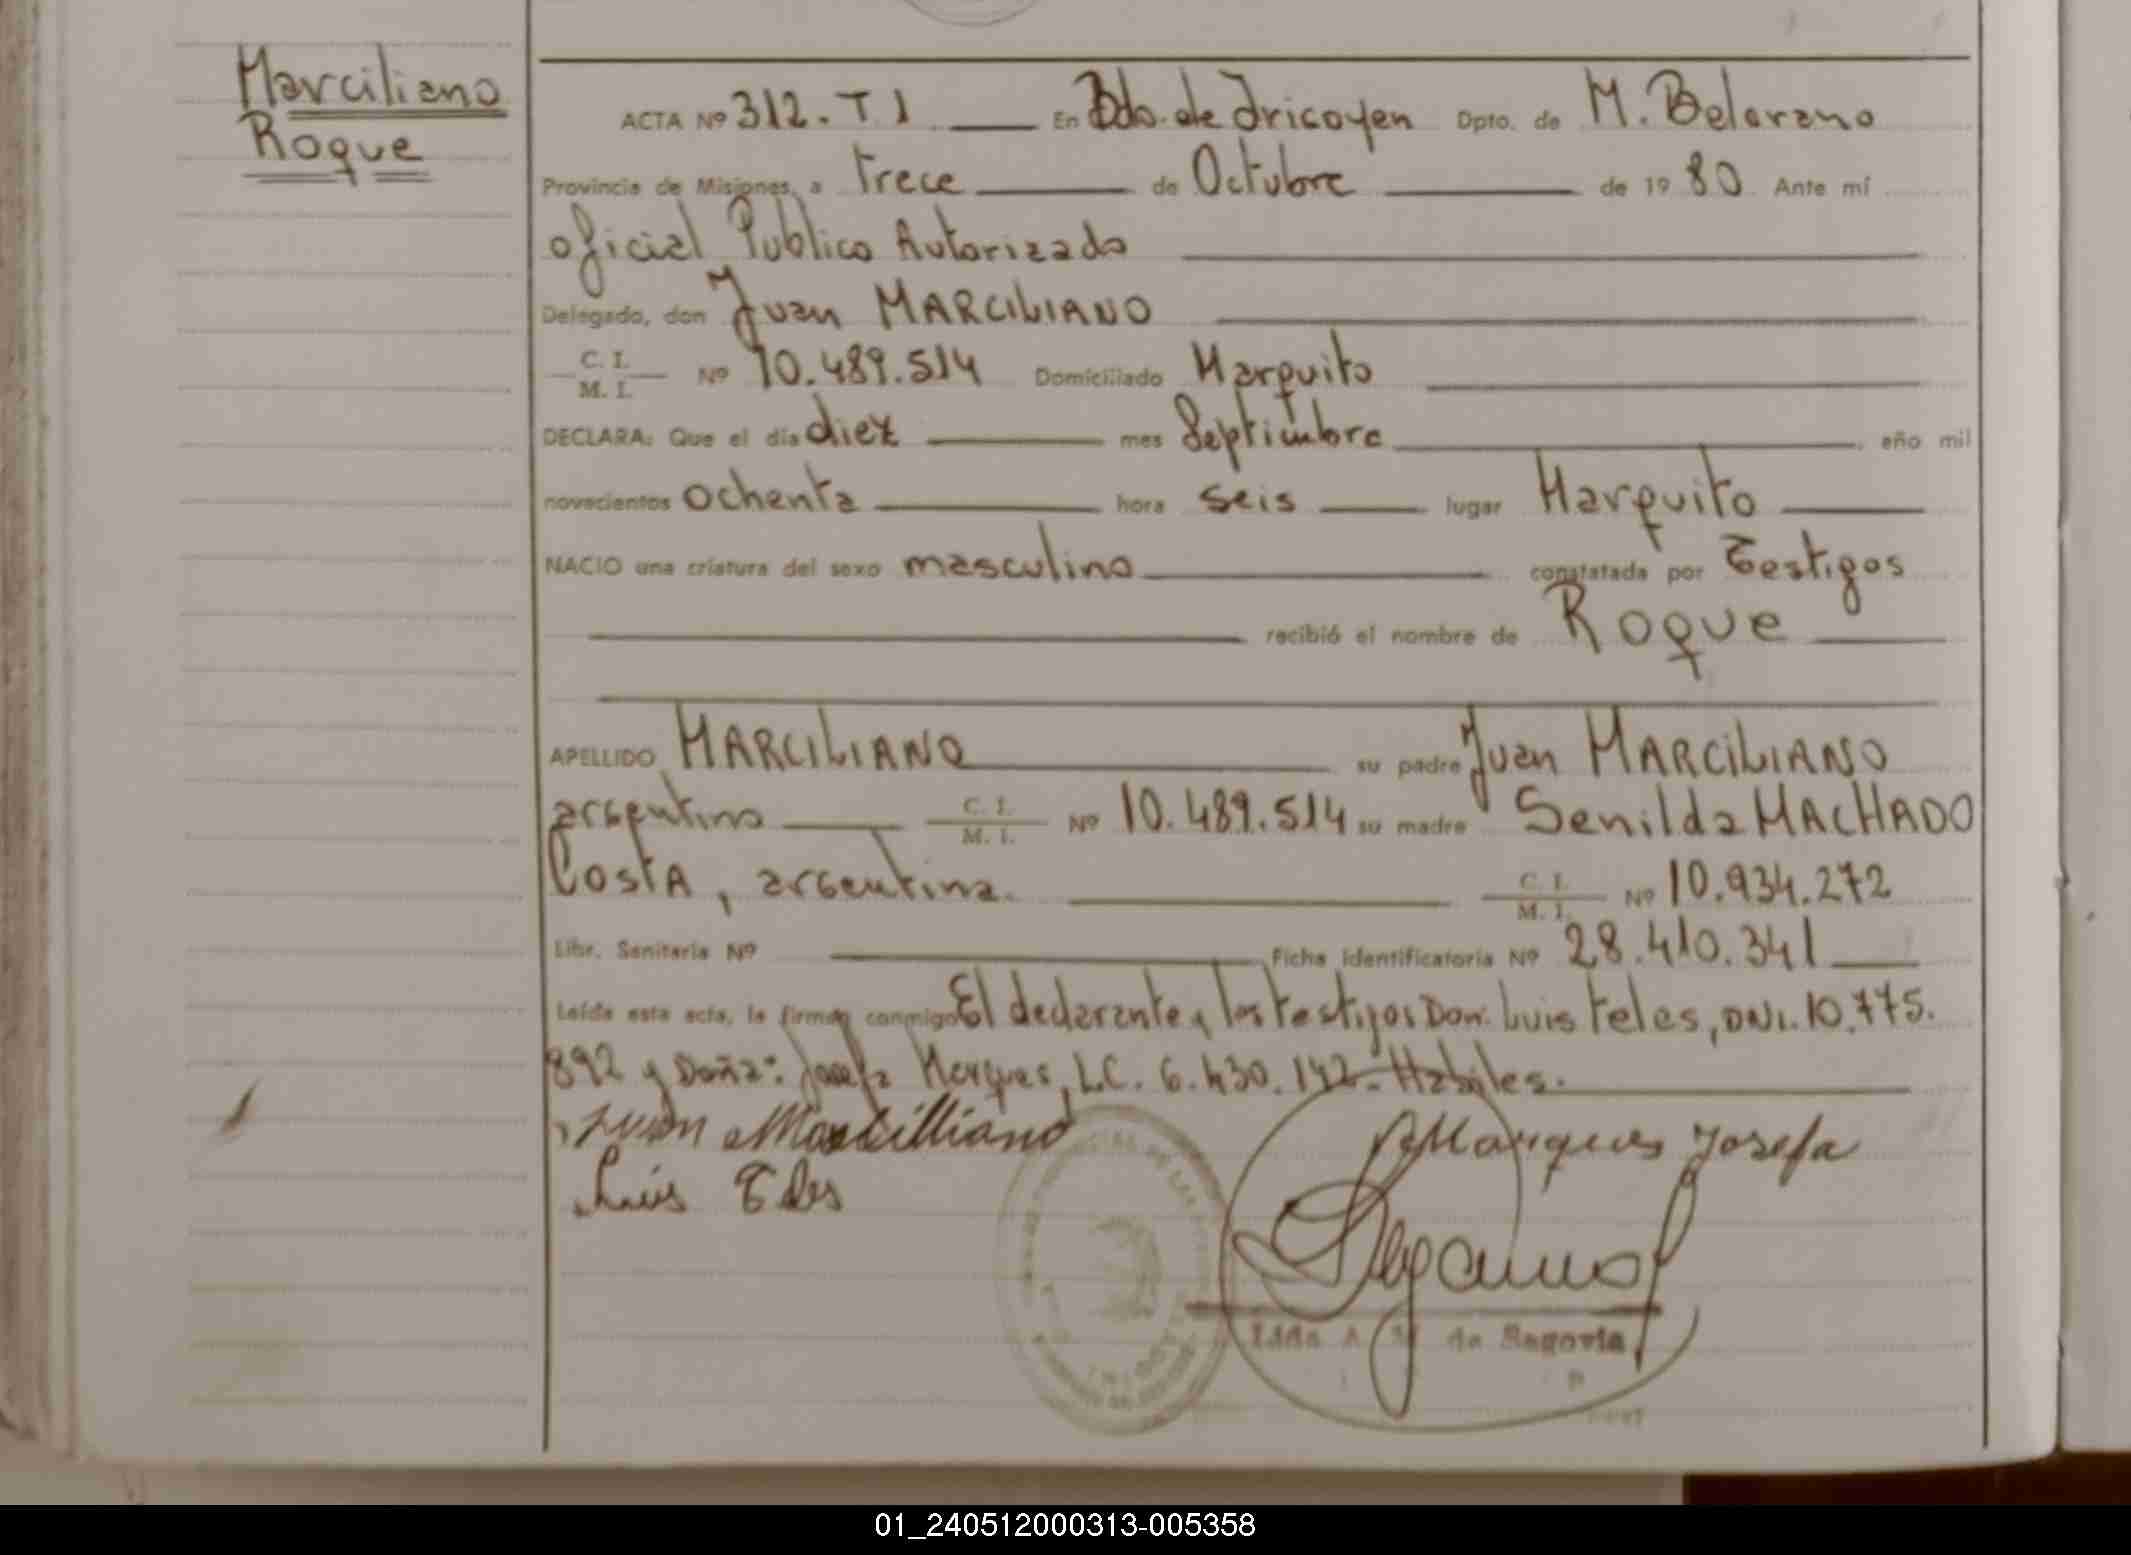 Marciliano
Roque
ACTA Nº 312. T I En Bdo. de Irigoyen Dpto. de M. Belgrano
Provincia de Misiones, a Trece de Octubre de 19 80 Ante mí
oficial Publico Autorizado
Delegado, don Juan MARCILIANO
C. I.
M. I. Nº 10.489.514 Domiciliado Marquito
DECLARA: Que el día diez mes Septiembre año mil
novecientos ochenta hora seis lugar Marquito
NACIO una criatura del sexo masculino constatada por Testigos
recibió el nombre de Roque
APELLIDO MARCILIANO su padre Juan MARCILIANO
argentino C. I. M. I. Nº 10.489.514 su madre Senilda MACHADO
COSTA, argentina. C. I. M. I. Nº 10.934.272
Libr. Sanitaria Nº Ficha Identificatoria Nº 28.410.341
Leída esta acta, la firman conmigo El declarante y los testigos Don: Luis Teles, DNI. 10.775.
892 y Doña: Josefa Marques, L.C. 6.430.142- Habiles.
Juan Marcilliano
Marques Josefa
Luis Teles
de Segovia
01_240512000313-005358